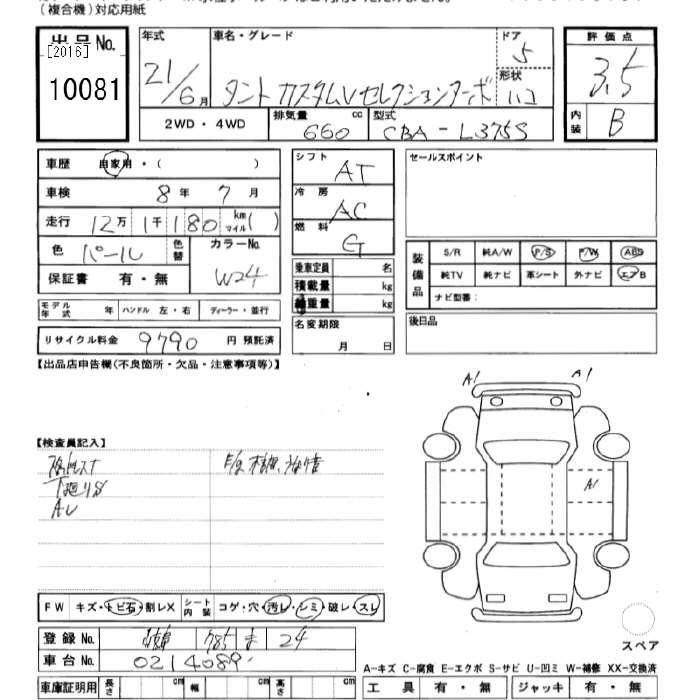 (複合機)対応用紙
出品No.
[2016]
10081
年式
21/6月
車名・グレード
タント カスタムVセレクションターボ
ドア
5
形状
ハコ
評価点
3.5
内装
B
2WD・4WD
排気量
660
cc
型式
CBA-L375S
車歴 自家用・( )
車検 8年 7月
走行 12万 1千 180 km マイル( )
色 パール 色替 カラーNo.
W24
保証書 有・無
モデル年式 年 ハンドル 左・右 ディーラー・並行
リサイクル料金 9790 円 預託済
シフト
AT
冷房
AC
燃料
G
乗車定員 名
積載量 kg
総重量 kg
名変期限
月 日
セールスポイント
装備品
S/R 純A/W P/S P/W ABS
純TV 純ナビ 革シート 外ナビ エアB
ナビ型番:
後日品
【出品店申告欄(不良箇所・欠品・注意事項等)】
A1 A1
A1
【検査員記入】
下廻りS
FW キズ・トビ石・割レX シート内装 コゲ・穴・汚レ・シミ・破レ・スレ
登録No. 785 ま 24
車台No. 0214089
車庫証明用 長さ cm 幅 cm 高さ cm
スペア
A-キズ C-腐食 E-エクボ S-サビ U-凹ミ W-補修 XX-交換済
工具 有・無 ジャッキ 有・無